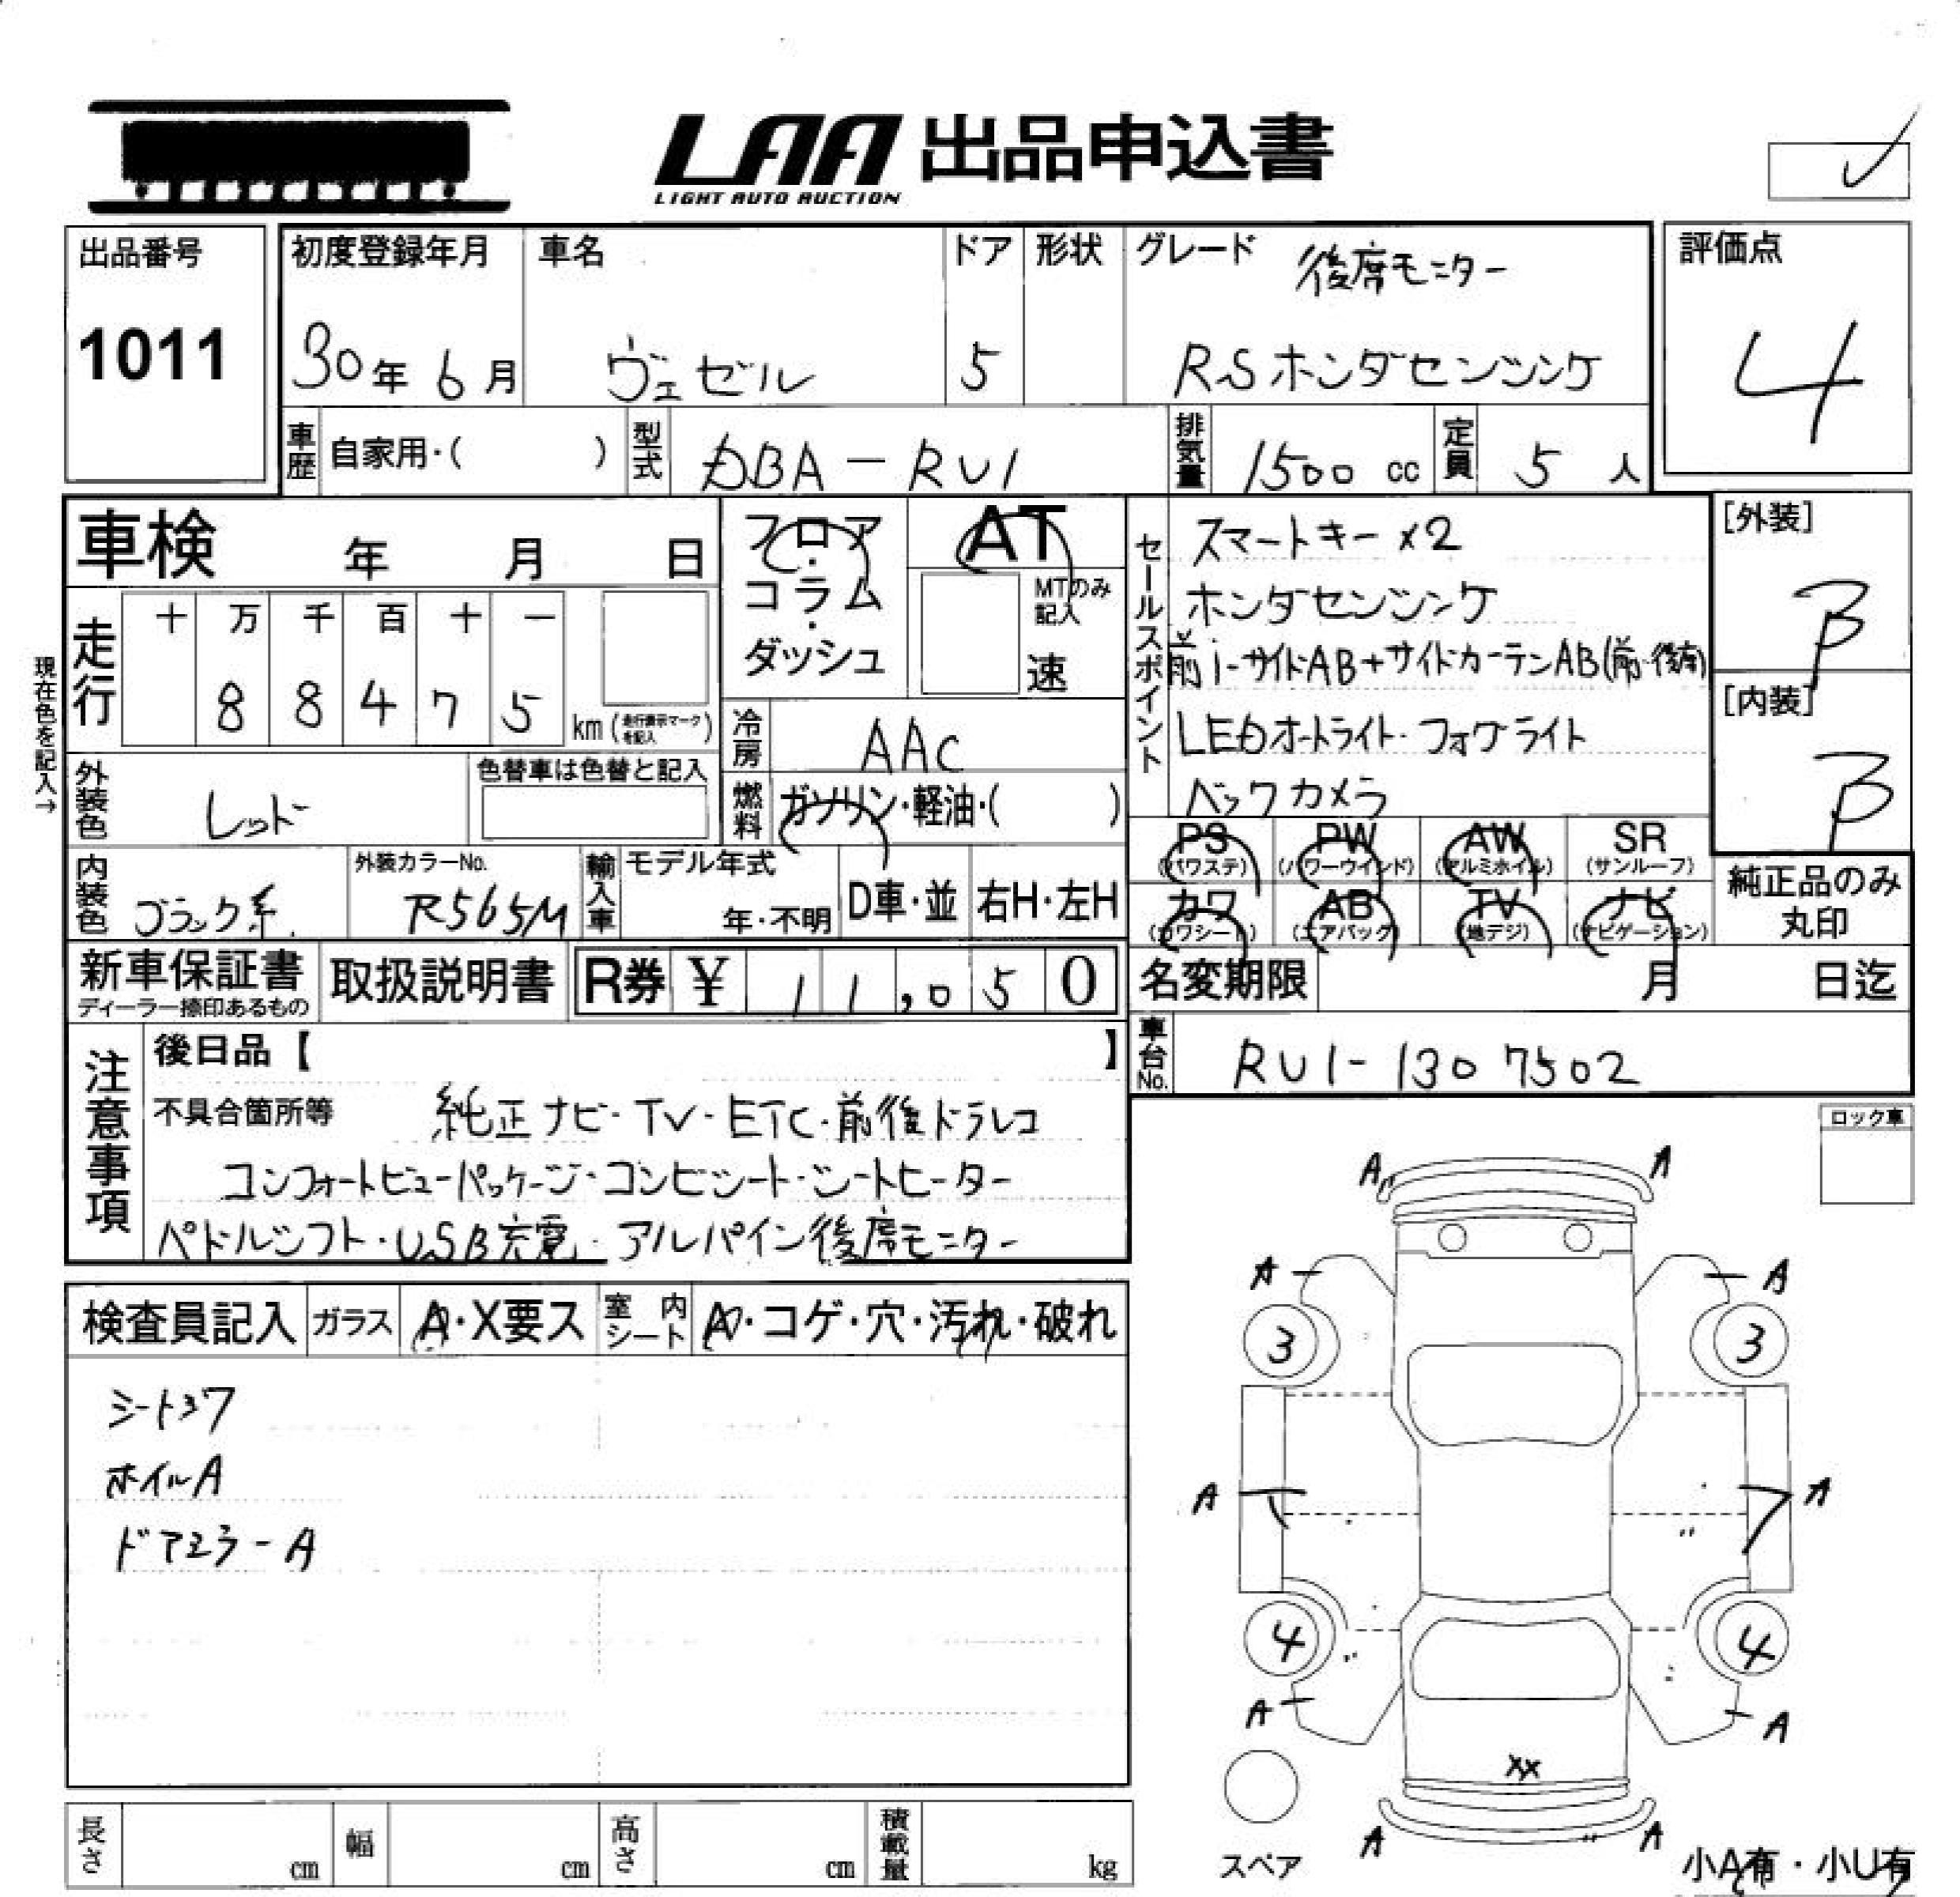 LAA 出品申込書
LIGHT AUTO AUCTION
出品番号
1011
初度登録年月
30年 6月
車名
ヴェゼル
ドア
5
形状
グレード
後席モニター
RSホンダセンシング
評価点
4
車歴 自家用・( )
型式 DBA-RU1
排気量 1500 cc
定員 5 人
車検 年 月 日
フロア・コラム・ダッシュ
AT
MTのみ記入
速
セールスポイント
スマートキー ×2
ホンダセンシング
前i-サイドAB+サイドカーテンAB(前・後席)
LEDオートライト・フォグライト
バックカメラ
[外装]
B
[内装]
B
現在色を記入→
走行
十 万 千 百 十 一
8 8 4 7 5
km(走行表示マークを記入)
冷房 AAC
外装色 レッド
色替車は色替と記入
燃料 ガソリン・軽油・( )
PS (パワステ) PW (パワーウインド) AW (アルミホイル) SR (サンルーフ)
カワ (カワシート) AB (エアバック) TV (地デジ) ナビ (ナビゲーション)
純正品のみ丸印
内装色 ブラック系
外装カラーNo. R565M
輸入車 モデル年式
年・不明
D車・並 右H・左H
新車保証書
ディーラー捺印あるもの
取扱説明書
R券 ¥ 11,050
名変期限 月 日迄
車台No. RU1-1307502
注意事項
後日品【 】
不具合箇所等 純正ナビ・TV・ETC・前後ドラレコ
コンフォートビューパッケージ・コンビシート・シートヒーター
パドルシフト・USB充電・アルパイン後席モニター
ロック車
検査員記入 ガラス A・X要ス 室内シート A・コゲ・穴・汚れ・破れ
ホイルA
ドアミラーA
A A
A A
3 3
A A
4 4
A A
XX
A A
スペア
小A有・小U有
長さ cm 幅 cm 高さ cm 積載量 kg